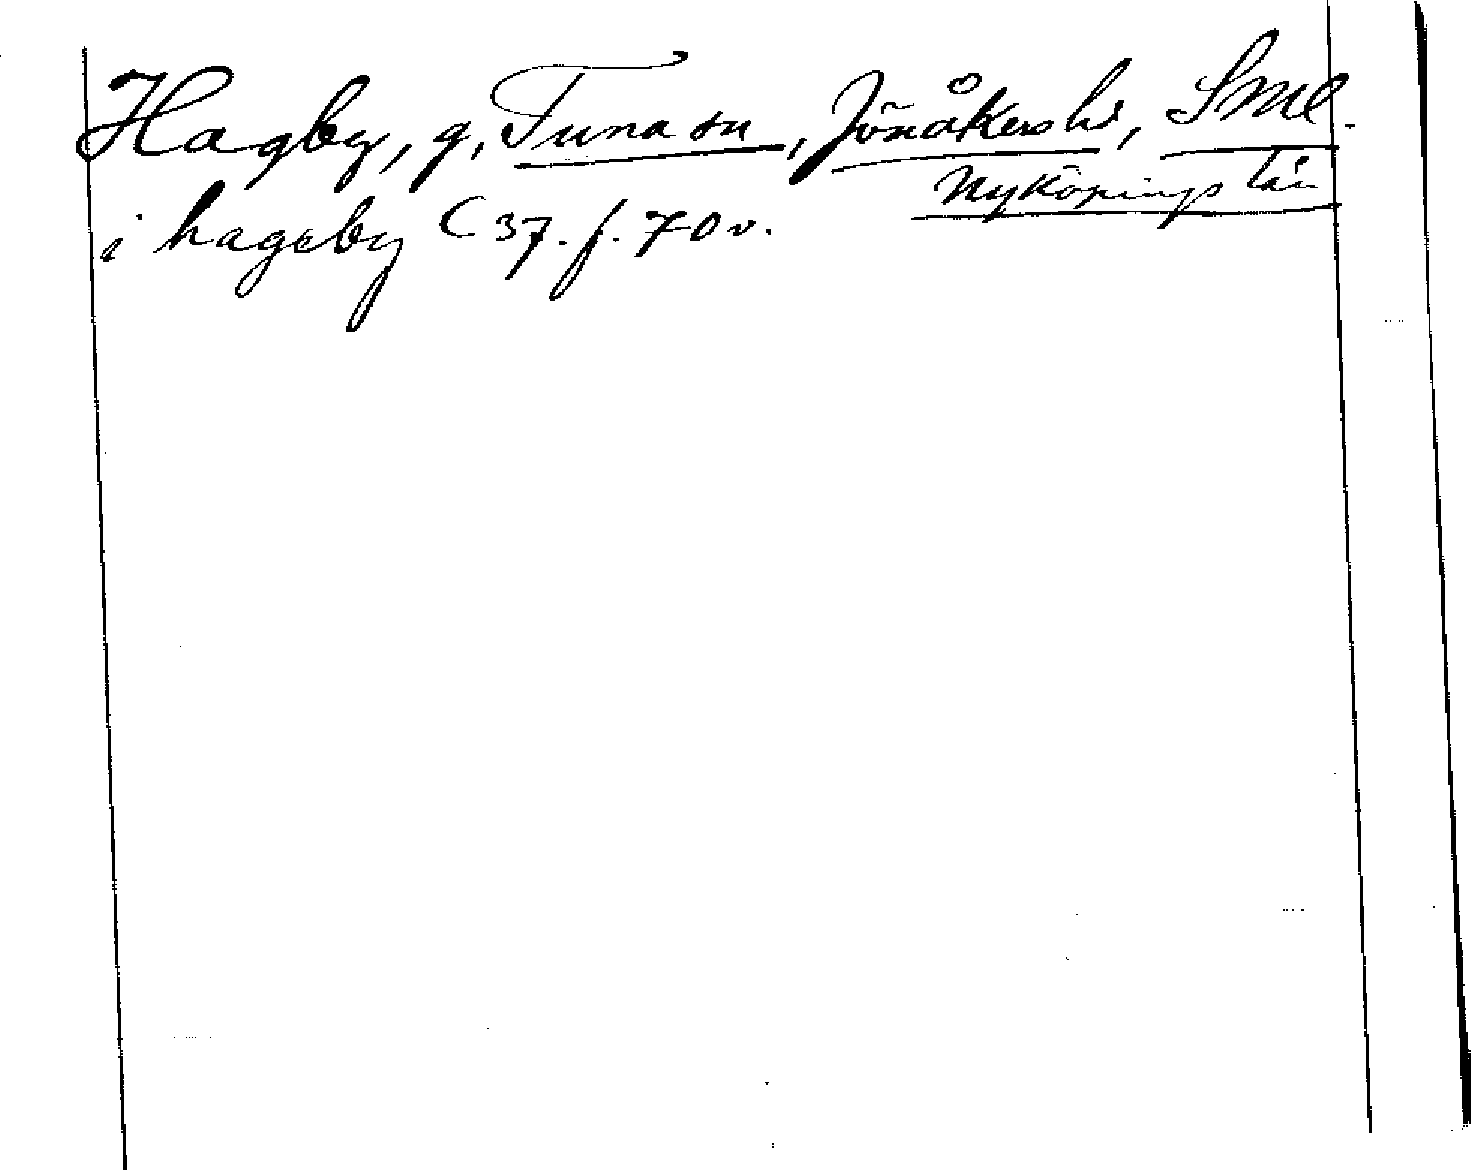 Hagby, g, Tuna sn, Jönåkers hd, Sml.
Nyköpings län
i hageby C 37. f. 70 v.